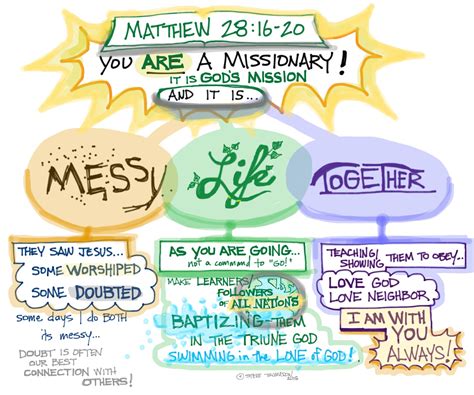 MATTHEW 28:16-20
YOU ARE A MISSIONARY!
IT IS GOD'S MISSION
AND IT IS...
MESSY
Life
TOGETHER
THEY SAW JESUS...
SOME WORSHIPED
SOME DOUBTED
some days I do BOTH
its messy...
DOUBT IS OFTEN
OUR BEST
CONNECTION WITH
OTHERS!
AS YOU ARE GOING...
not a command to "GO!"
MAKE LEARNERS
FOLLOWERS
OF ALL NATIONS
BAPTIZING THEM
IN THE TRIUNE GOD
SWIMMING in the LOVE of GOD!
TEACHING/
SHOWING THEM TO OBEY...
LOVE GOD
LOVE NEIGHBOR
I AM WITH
YOU
ALWAYS!